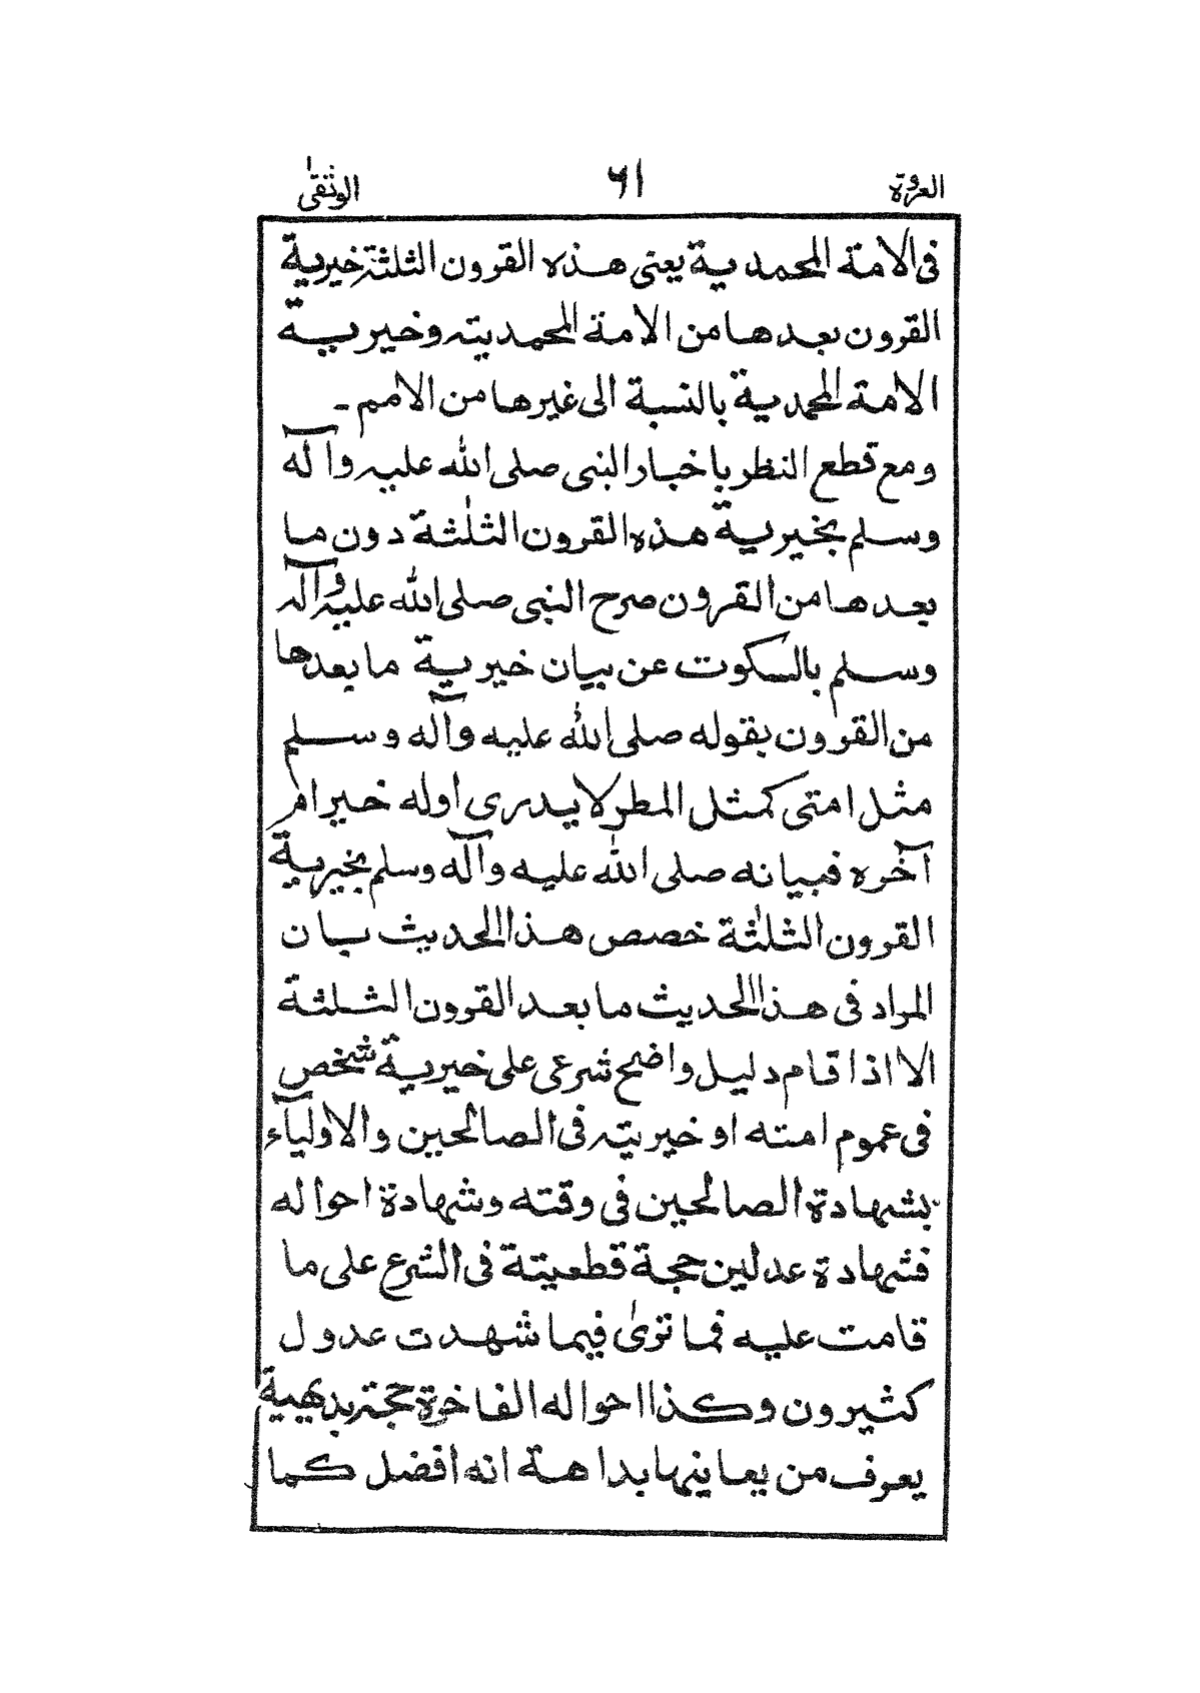 العروة ٦١ الوثقىٰ
فى الامة المحمدية يعنى هذه القرون الثلثة خيرية
القرون بعدها من الامة المحمديته وخيرية
الامة المحمدية بالنسبة الى غيرها من الامم ـ
ومع قطع النظر باخبار النبى صلى الله عليه وآله
وسلم بخيرية هذه القرون الثلٰثة دون ما
بعدها من القرون صرح النبى صلى الله عليه وآله
وسلم بالسكوت عن بيان خيرية ما بعدها
من القرون بقوله صلى الله عليه وآله وسلم
مثل امتى كمثل المطر لا يدرى اوله خير ام
آخره فبيانه صلى الله عليه وآله وسلم بخيرية
القرون الثلٰثة خصص هذا الحديث بان
المراد فى هذا الحديث ما بعد القرون الثلثة
الا اذا قام دليل واضح شرعى على خيرية شخص
فى عموم امته او خيريته فى الصالحين والاولياء
بشهادة الصالحين فى وقته وشهادة احواله
فشهادة عدلين حجة قطعيتة فى الشرع على ما
قامت عليه فما ترىٰ فيما شهدت عدول
كثيرون وكذا احواله الفاخرة حجة بديهية
يعرف من يعاينها بداهة انه افضل كما